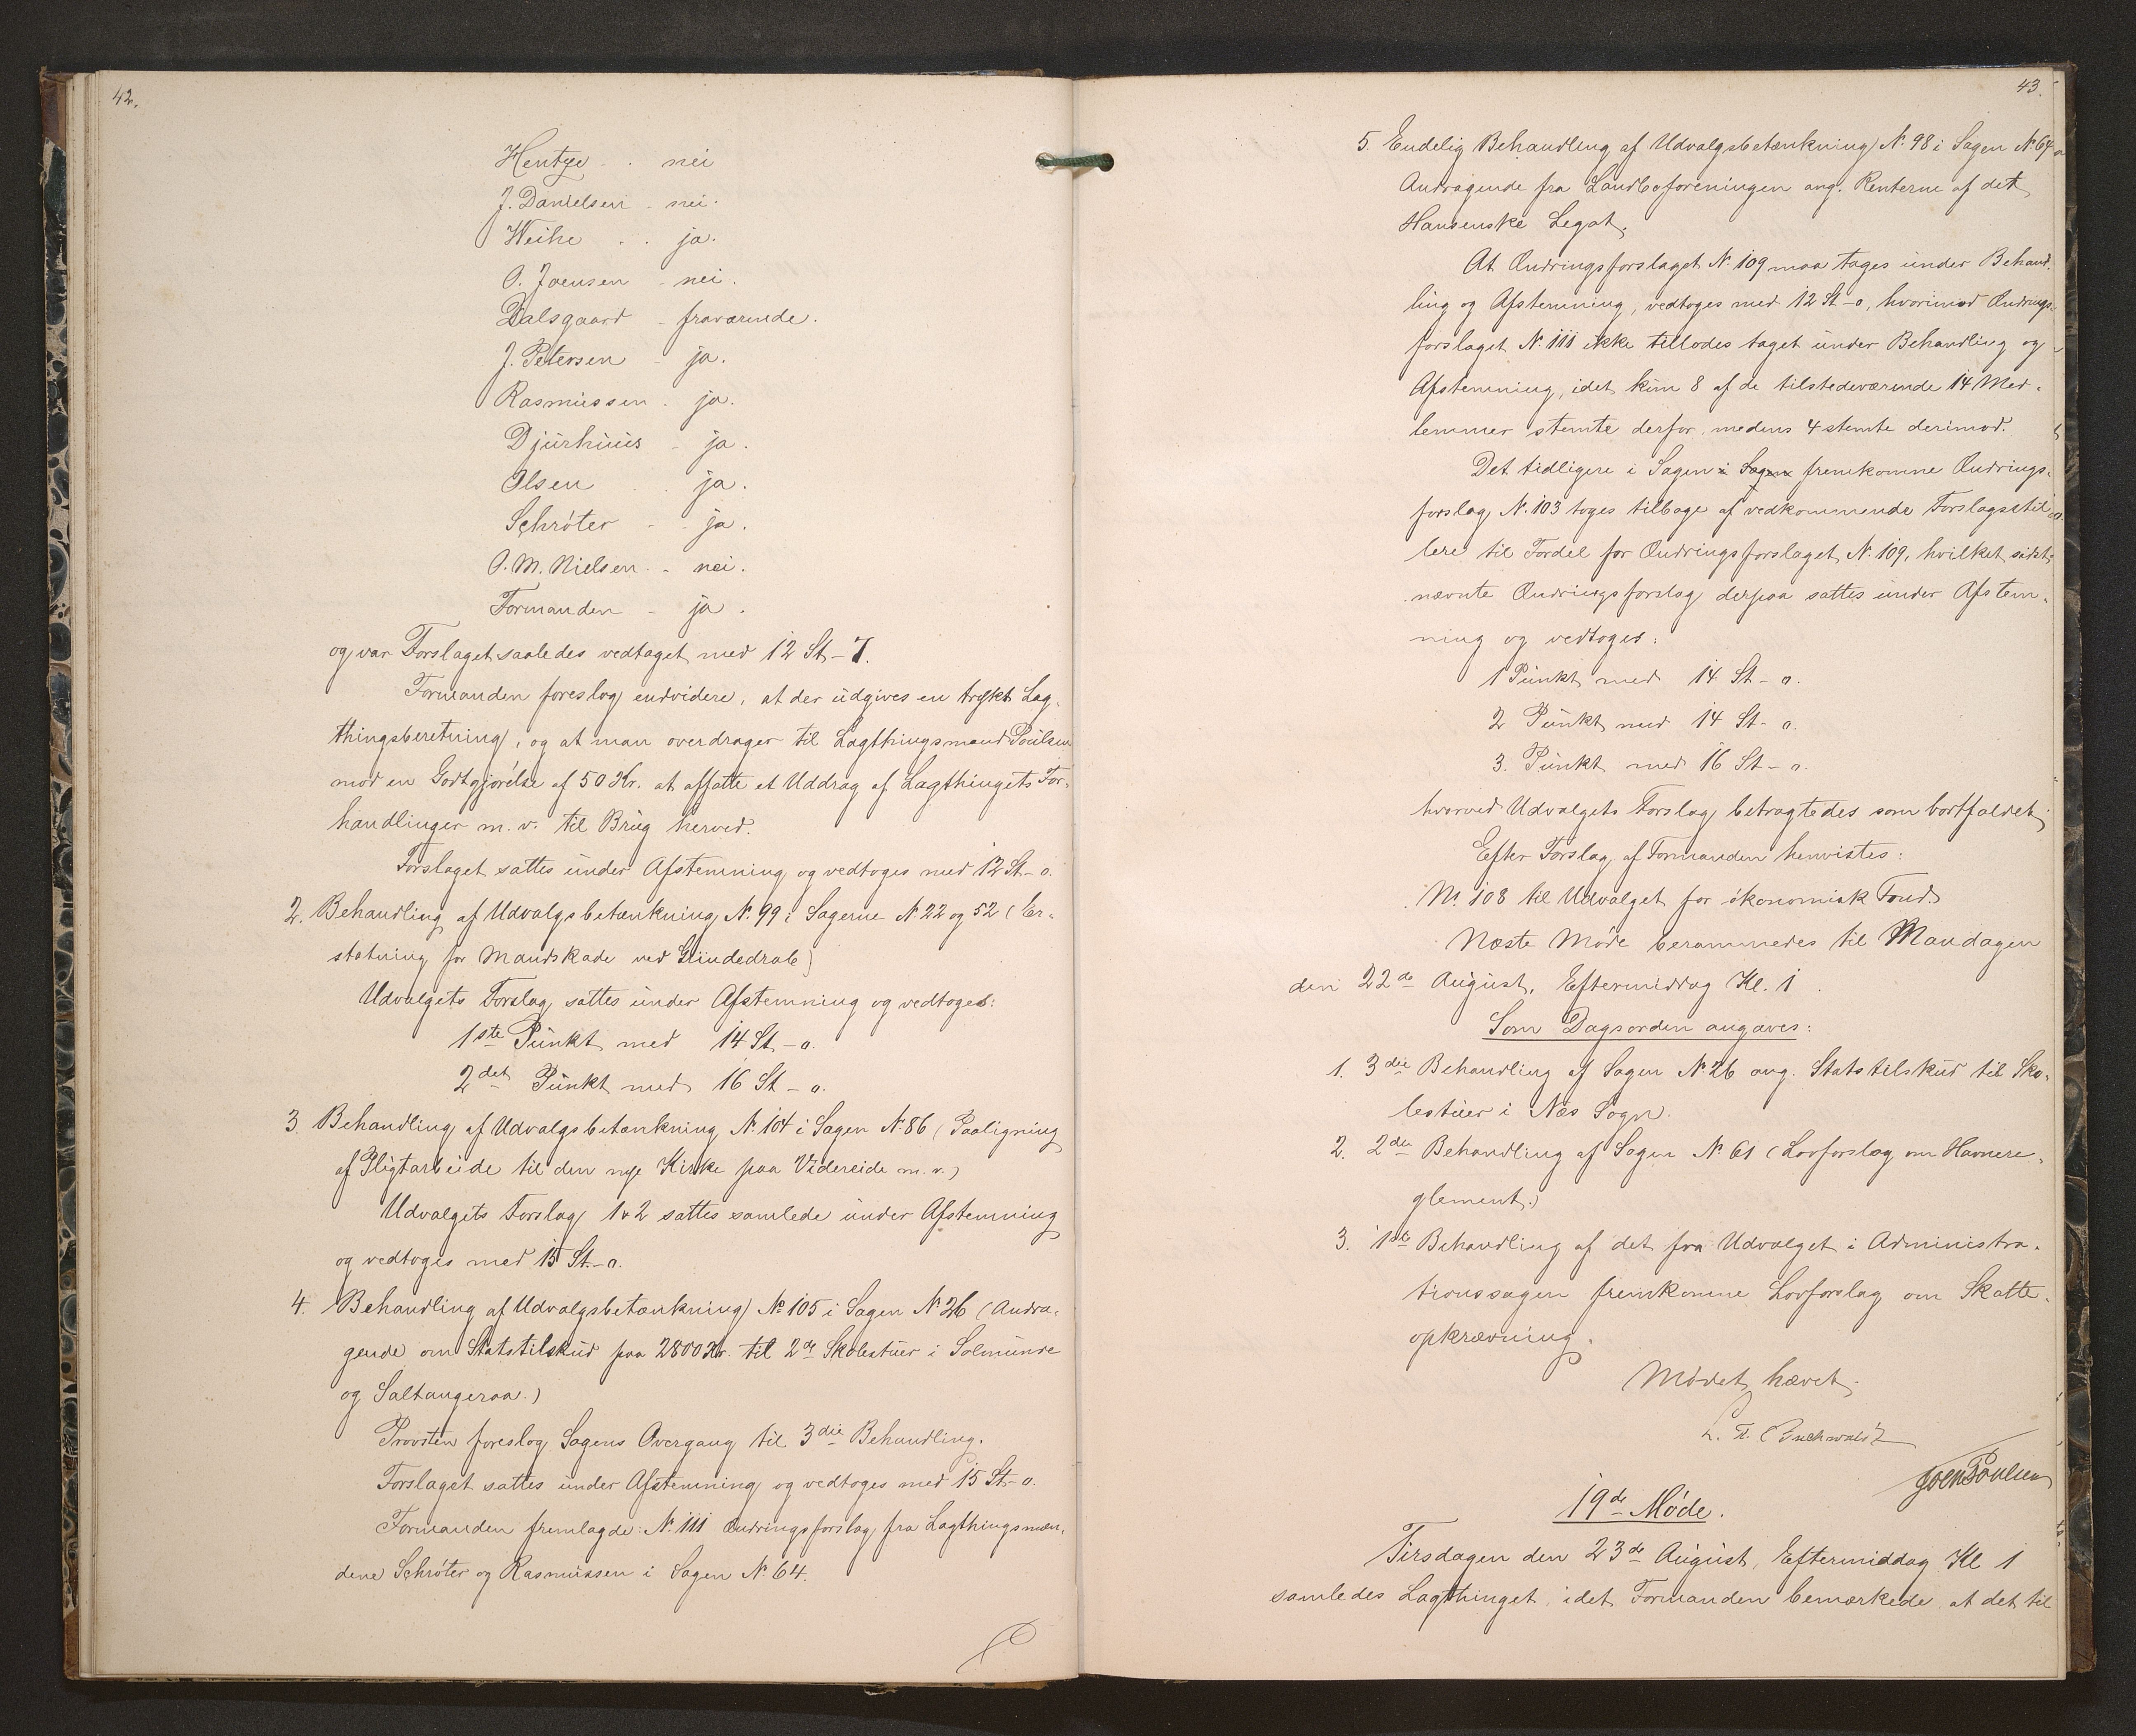 42.
Hentze . . nei
J. Danielsen - nei.
Weihe . . ja.
O. Joensen - nei.
Dalsgaard - fraværende.
J. Petersen - ja.
Rasmussen . ja.
Djurhuus - ja.
Olsen . . ja.
Schrøter - - ja.
O. M. Nielsen - - nei.
Formanden - ja.
og var Forslaget saaledes vedtaget med 12 St - 7.
Formanden foreslog endvidere, at der udgives en trykt Lag-
thingsberetning, og at man overdrager til Lagthingsmand Poulsen
mod en Godtgjørelse af 50 Kr. at affatte et Uddrag af Lagthingets For-
handlinger m. v. til Brug herved.
Forslaget sattes under Afstemning og vedtoges med 12 St - o.
2. Behandling af Udvalgsbetænkning N. 99 i Sagerne N 22 og 52 (Er-
statning for Mandskade ved Grindedrab)
Udvalgets Forslag sattes under Afstemning og vedtoges:
1ste Punkt med 14 St - o.
2det Punkt med 16 St - o.
3. Behandling af Udvalgsbetænkning N. 104 i Sagen N. 86 (Paaligning
af Pligtarbeide til den nye Kirke paa Videreide m. v.)
Udvalgets Forslag 1 & 2 sattes samlede under Afstemning
og vedtoges med 15 St. - o.
4. Behandling af Udvalgsbetænkning N. 105 i Sagen N. 26 (Andra-
gende om Statstilskud paa 2800 Kr. til 2de Skolestuer i Solmunde
og Saltangeraa.)
Provsten foreslog Sagens Overgang til 3die Behandling.
Forslaget sattes under Afstemning og vedtoges med 15 St - o.
Formanden fremlagde: N. 111 Ændringsforslag fra Lagthingsmæn-
dene Schrøter og Rasmussen i Sagen N. 64.
43.
5. Endelig Behandling af Udvalgsbetænkning N. 98 i Sagen N. 64
Andragende fra Landboforeningen ang. Renterne af det
Hansenske Legat.
At Ændringsforslaget N. 109 maa tages under Behand-
ling og Afstemning, vedtoges med 12 St - o, hvorimod Ændrings-
forslaget N. 111 ikke tillodes taget under Behandling og
Afstemning, idet kun 8 af de tilstedeværende 14 Med-
lemmer stemte derfor, medens 4 stemte derimod.
Det tidligere i Sagen i Sagen fremkomne Ændrings-
forslag N. 103 toges tilbage af vedkommende Forslagsstil-
lere til Fordel for Ændringsforslaget N. 109, hvilket sidst-
nævnte Ændringsforslag derpaa sattes under Afstem-
ning og vedtoges:
1 Punkt med 14 St - o.
2 Punkt med 14 St - o.
3. Punkt med 16 St - o.
hvorved Udvalgets Forslag betragtedes som bortfaldet.
Efter Forslag af Formanden henvistes:
N. 108 til Udvalget for økonomisk Fond.
Næste Møde berammedes til Mandagen
den 22de August, Eftermiddag Kl. 1.
Som Dagsorden angaves:
1. 3die Behandling af Sagen N. 26 ang. Statstilskud til Sko-
lestuer i Næs Sogn.
2. 2den Behandling af Sagen N. 61 (Lovforslag om Havnere-
glement.)
3. 1ste Behandling af det fra Udvalget i Administra-
tionssagen fremkomne Lovforslag om Skatte-
opkrævning.
Mødet hævet.
L. F. Buchwaldt
Joen Poulsen
19de Møde.
Tirsdagen den 23de August, Eftermiddag Kl 1
samledes Lagthinget, idet Formanden bemærkede, at det til